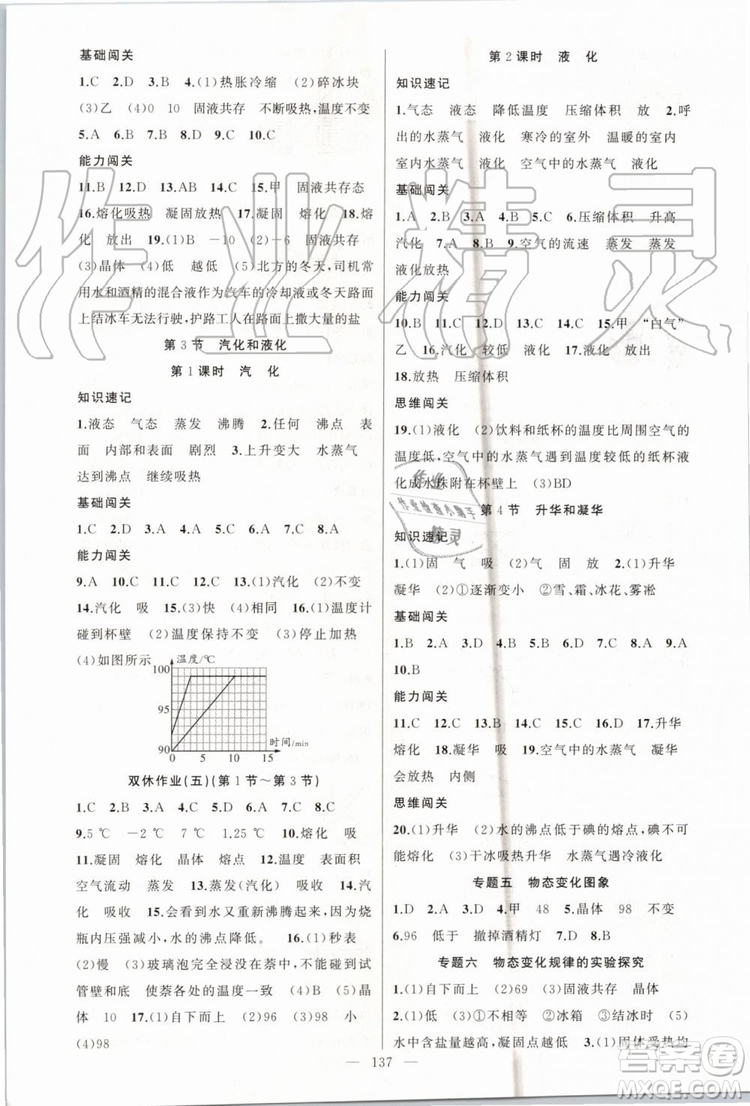 基础闯关
1.C 2.D 3.B 4.(1)热胀冷缩 (2)碎冰块
(3)乙 (4)0 10 固液共存 不断吸热,温度不变
5.A 6.B 7.A 8.B 9.C 10.C
能力闯关
11.B 12.D 13.AB 14.C 15.甲 固液共存态
16.熔化吸热 凝固放热 17.凝固 熔化 18.熔
化 放出 19.(1)B -10 (2)-6 固液共存
(3)晶体 (4)低 越低 (5)北方的冬天,司机常
用水和酒精的混合液作为汽车的冷却液或冬天路面
上结冰车无法行驶,护路工人在路面上撒大量的盐
第3节 汽化和液化
第1课时 汽 化
知识速记
1.液态 气态 蒸发 沸腾 2.任何 沸点 表
面 内部和表面 剧烈 3.上升变大 水蒸气
达到沸点 继续吸热
基础闯关
1.C 2.D 3.C 4.C 5.A 6.C 7.B 8.D
能力闯关
9.A 10.C 11.C 12.C 13.(1)汽化 (2)不变
14.汽化 吸 15.(3)快 (4)相同 16.(1)温度计
碰到杯壁 (2)温度保持不变 (3)停止加热
(4)如图所示
温度/℃
100
95
90
0 5 10 15
时间/min
双休作业(五)(第1节~第3节)
1.C 2.B 3.D 4.A 5.C 6.C 7.B 8.C
9.5 ℃ -2 ℃ 7 ℃ 1.25 ℃ 10.熔化 吸
11.凝固 熔化 晶体 熔点 12.温度 表面积
空气流动 蒸发 13.蒸发(汽化) 吸收 14.汽
化 吸收 15.看到水又重新沸腾起来,因为浇水,烧
瓶内压强减小,水的沸点降低。 16.(1)秒表
(2)慢 (3)玻璃泡完全浸没在萘中,不能碰到试
管壁和底 使萘各处的温度一致 (4)B (5)晶
体 10 17.(1)自下而上 (2)96 (3)98 小
(4)98
第2课时 液 化
知识速记
1.气态 液态 降低温度 压缩体积 放 2.呼
出的水蒸气 液化 寒冷的室外 温暖的室内
室内水蒸气 液化 空气中的水蒸气 液化
基础闯关
1.A 2.B 3.A 4.B 5.D 6.压缩体积 升高
汽化 7.A 8.B 9.空气的流速 蒸发 蒸发
液化放热
能力闯关
10.B 11.C 12.D 13.A 14.A 15.甲 “白气”
乙 16.汽化 较低 液化 17.吸收 液化
18.放热 压缩体积
思维闯关
19.(1)液化 (2)饮料和纸杯的温度比周围空气的
温度低,空气中的水蒸气遇到温度较低的纸杯液
化成水珠附在杯壁上 (3)BD
第4节 升华和凝华
知识速记
1.(1)固 气 吸 (2)气 固 放 2.(1)升华
凝华 (2)①逐渐变小 ②雪、霜、冰花、雾凇
基础闯关
1.B 2.A 3.D 4.A 5.D 6.D 7.D 8.A 9.A
10.B
能力闯关
11.C 12.C 13.B 14.C 15.D 16.D 17.升华
熔化 18.凝华 吸 19.空气中的水蒸气 凝华
会放热 内侧
思维闯关
20.(1)升华 (2)水的沸点低于碘的熔点,碘不可
能熔化 (3)干冰吸热升华 水蒸气遇冷液化
专题五 物态变化图象
1.D 2.A 3.D 4.甲 48 5.晶体 98 不变
6.96 低于 撤掉酒精灯 7.D 8.B
专题六 物态变化规律的实验探究
1.(1)自下而上 (2)69 (3)固液共存 晶体
2.(1)水 (2)冰 (3)结冰前 (4)结冰时 (5)
水中含盐量越高,凝固点越低 3.(1)固体受热均
137
作业精灵
作业
作业检查小助手
精灵
答案圈
MXQE.COM